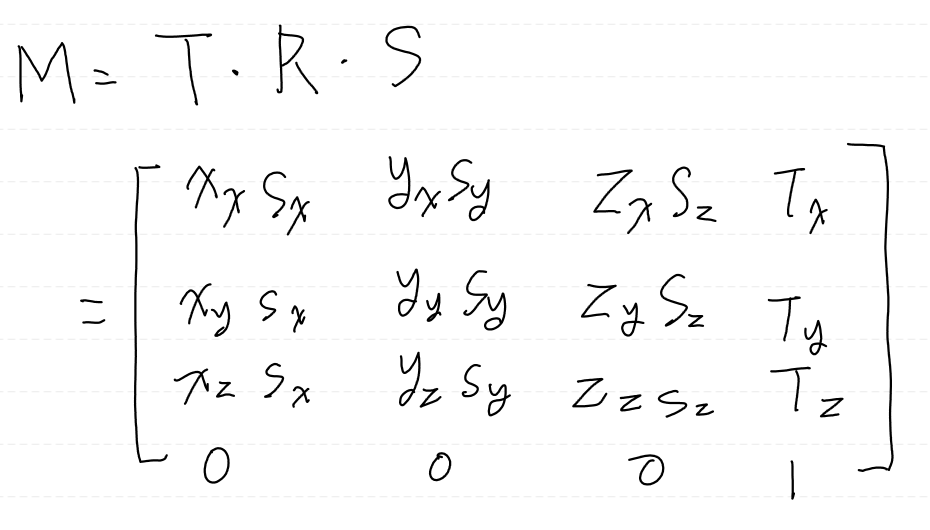 M = T · R · S
= [ x_x S_x y_x S_y z_x S_z T_x
x_y S_x y_y S_y z_y S_z T_y
x_z S_x y_z S_y z_z S_z T_z
0 0 0 1 ]